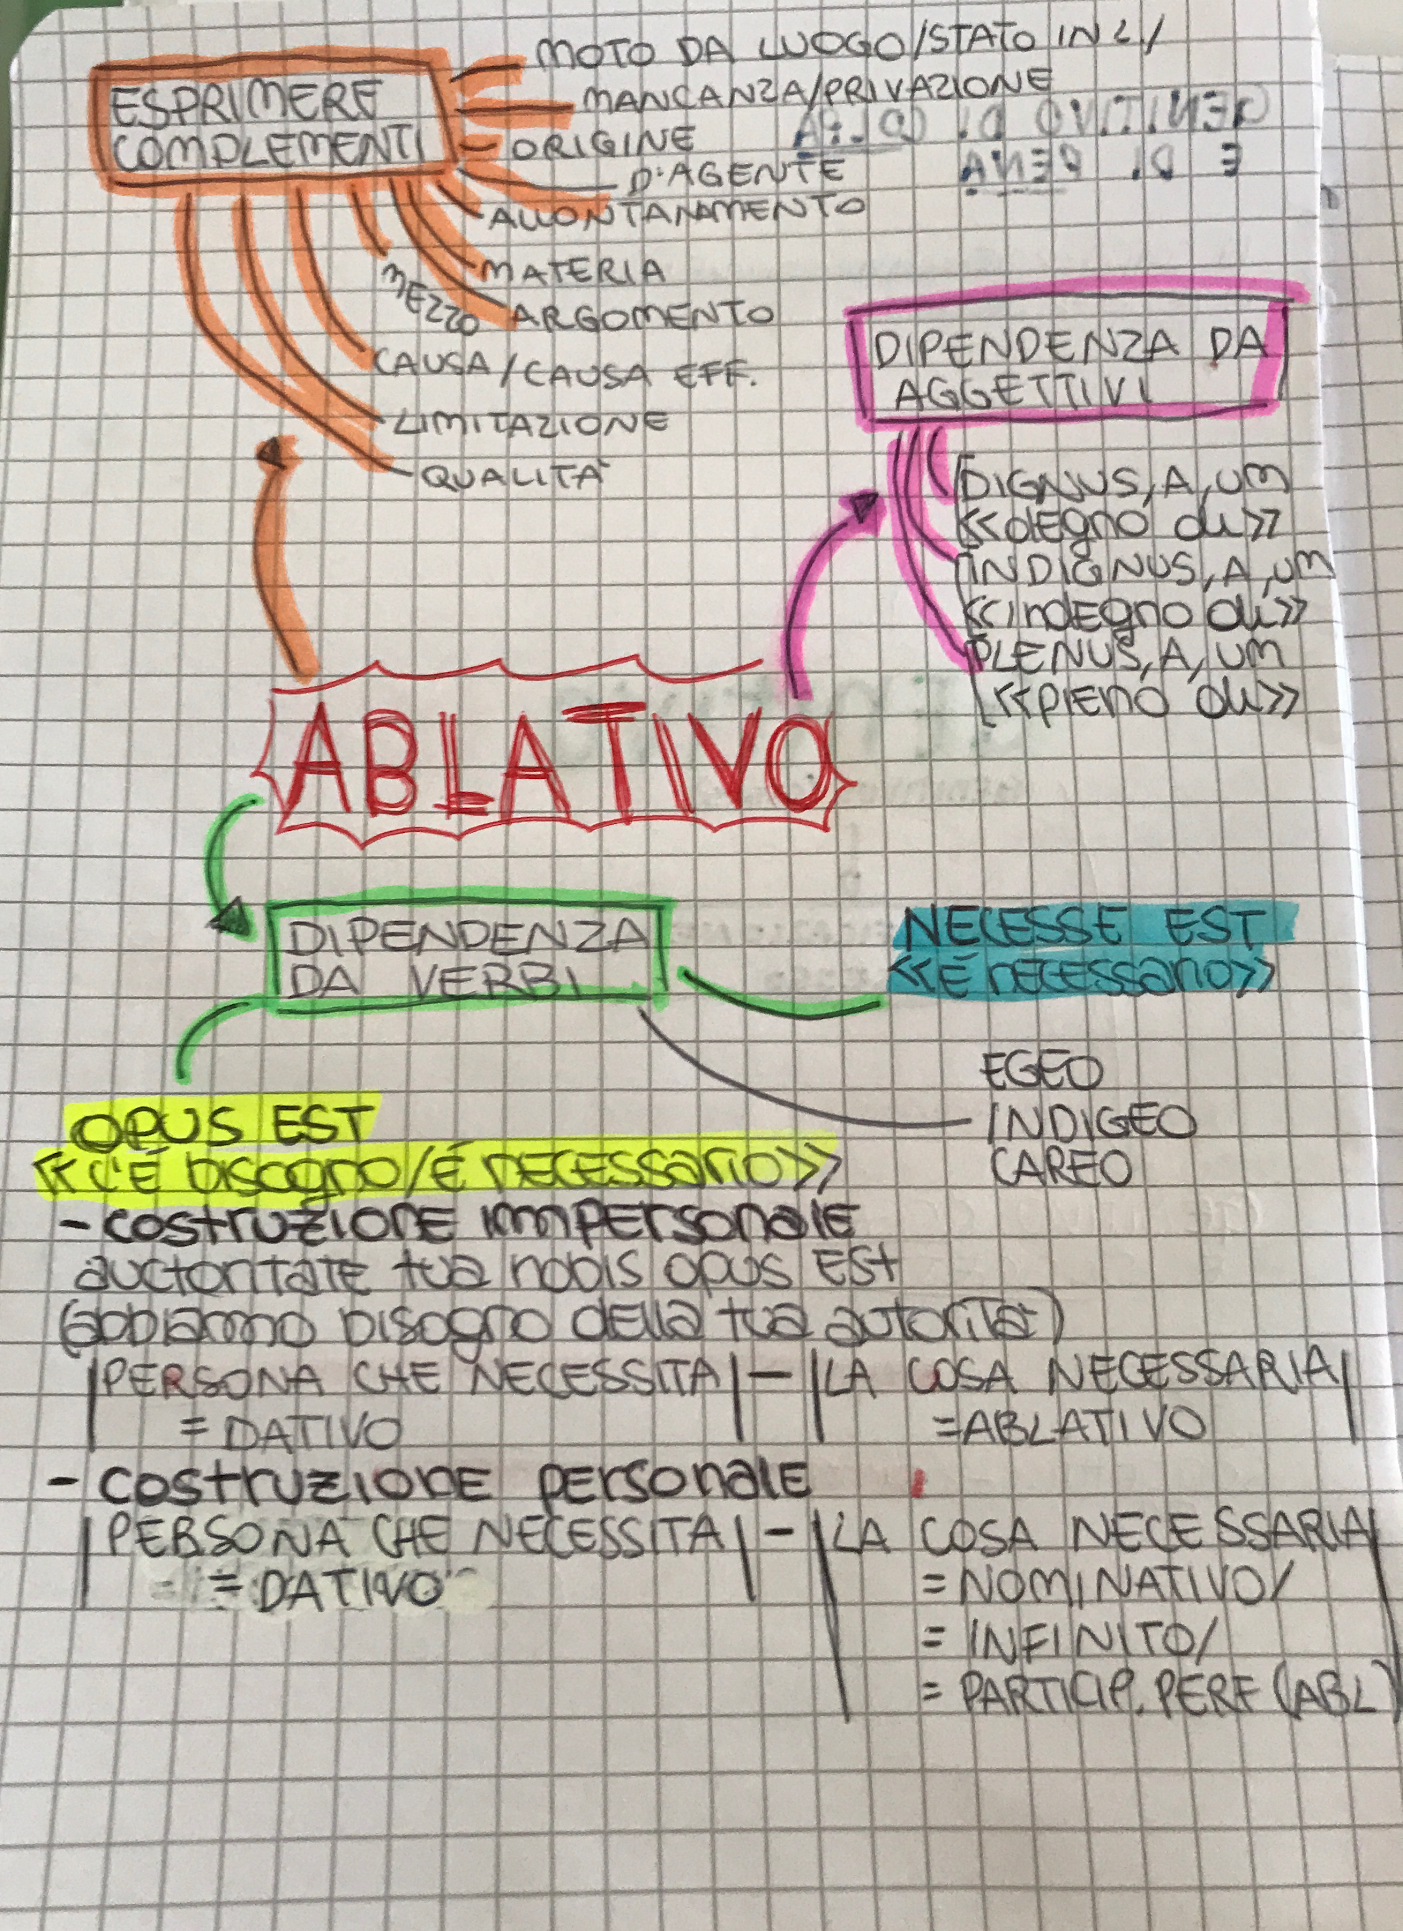 ESPRIMERE
COMPLEMENTI
MOTO DA LUOGO/STATO IN L/
MANCANZA/PRIVAZIONE
ORIGINE
D'AGENTE
ALLONTANAMENTO
MATERIA
MEZZO
ARGOMENTO
CAUSA/CAUSA EFF.
LIMITAZIONE
QUALITÀ
GENITIVO DI COLPA
E DI PENA
DIPENDENZA DA
AGGETTIVI
DIGNUS, A, UM
<<degno di>>
INDIGNUS, A, UM
<<indegno di>>
PLENUS, A, UM
<<pieno di>>
ABLATIVO
DIPENDENZA
DA VERBI
NECESSE EST
<<É necessario>>
EGEO
INDIGEO
CAREO
OPUS EST
<<C'É bisogno/É necessario>>
- costruzione impersonale
auctoritate tua nobis opus est
(abbiamo bisogno della tua autorità)
|PERSONA CHE NECESSITA| - |LA COSA NECESSARIA|
= DATIVO =ABLATIVO
- costruzione personale
|PERSONA CHE NECESSITA| - |LA COSA NECESSARIA|
= DATIVO = NOMINATIVO/
= INFINITO/
= PARTICIP. PERF (ABL)